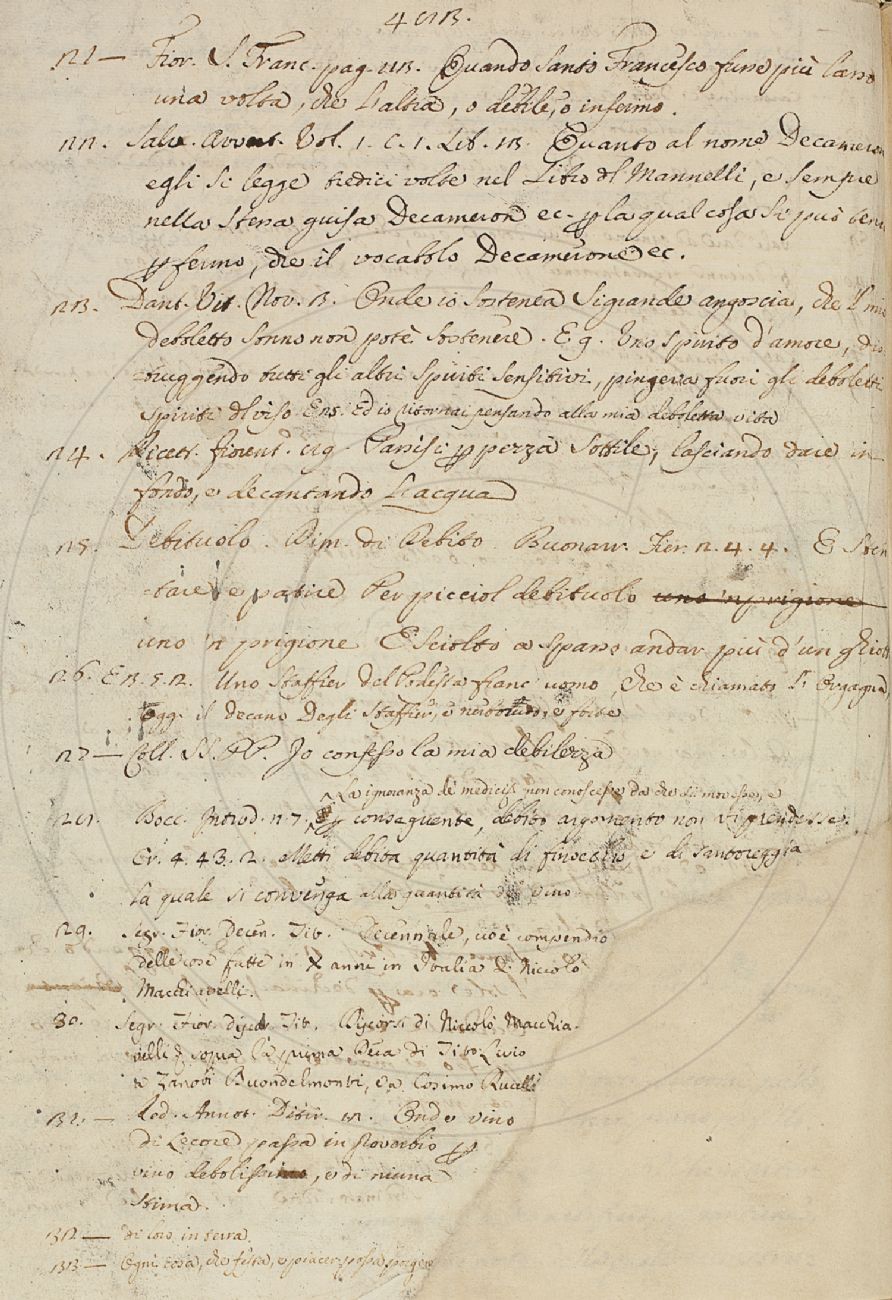 121 — Fior. S. Franc. pag. 113. Quando Santo Francesco fusse più lasso
una volta, che l'altra, o debile, o infermo.
122. Salv. Avvert. Vol. 1. C. 1. Lib. 13. Quanto al nome Decameron
egli si legge tredici volte nel Libro dl Mannelli, e sempre
nella stessa guisa Decameron ec. p la qual cosa si può tener
p fermo, che il vocabolo Decamerone ec.
123. Dant. Vit. Nov. 3. Onde io sostenea si grande angoscia, che l mio
deboletto sonno non potè sostenere. E 9. Uno spirito d'amore, dis
truggendo tutti gli altri spiriti sensitivi, pingeva fuori gli deboletti
spiriti dl viso. Ed io ritornai pensando alla mia deboletta vita
124. Ricett. fiorent. Passisi p pezza sottile, lasciando dare in
fondo, e decantando l'acqua
125. Debituolo. Dim. di Debito. Buonarr. Fier. 2. 4. 4. E sten
tare e patire Per picciol debituolo uno 'n prigione
uno 'n prigione E sciolto a spasso andar più d'un ghiott
126. E 3. 5. 2. Uno staffier del Podestà franc' uomo, che è chiamato l' Orgagna,
oggi il decano Degli staffieri, e nerboruto, e forte
127 — Coll. SS. PP. Io confesso la mia debilezza
La ignoranza de' medicanti non conoscesse da che si movesse, e
128. Bocc. Introd. n. 7. p conseguente, debito argomento non vi prendesse.
Cr. 4. 43. 2. Metti debita quantità di finocchio, e di santoreggia
la quale si convenga alla quantità del vino
129. Segr. Fior. Decen. Tit. Decennale, cioè compendio
delle cose fatte in X anni in Italia di Niccolò
Macchiavelli.
30. Segr. Fior. discor. Tit. Discorsi di Niccolò Macchia-
velli sopra la prima Deca di Tito Livio
a Zanobi Buondelmonti, e a Cosimo Rucell
131. — Red. Annot. Ditir. Onde vino
di Lecore passa in proverbio p
vino debolissimo, e di niuna
stima.
132 — di loro in terra
133 — Ogni cosa, che festa, e piacer possa porgere